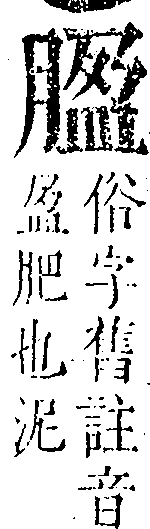 ⿰月盈
俗字舊註音
盈肥也泥